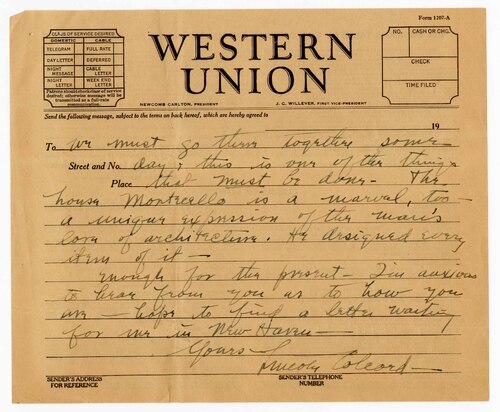 Form 1207-A
CLASS OF SERVICE DESIRED
DOMESTIC CABLE
TELEGRAM FULL RATE
DAY LETTER DEFERRED
NIGHT MESSAGE CABLE LETTER
NIGHT LETTER WEEK END LETTER
Patrons should check class of service desired; otherwise message will be transmitted as a full-rate communication.
WESTERN
UNION
NEWCOMB CARLTON, PRESIDENT J. C. WILLEVER, FIRST VICE-PRESIDENT
NO. CASH OR CHG.
CHECK
TIME FILED
Send the following message, subject to the terms on back hereof, which are hereby agreed to
19
To we must go there together some-
Street and No. day; this is one of the things
Place that must be done - The
house Monticello is a marvel, too -
a unique expression of the man's
love of architecture. He designed every
item of it -
Enough for the present - I'm anxious
to hear from you as to how you
are - hope to find a letter waiting
for me in New Haven -
Yours
Lincoln Colcord -
SENDER'S ADDRESS
FOR REFERENCE
SENDER'S TELEPHONE
NUMBER